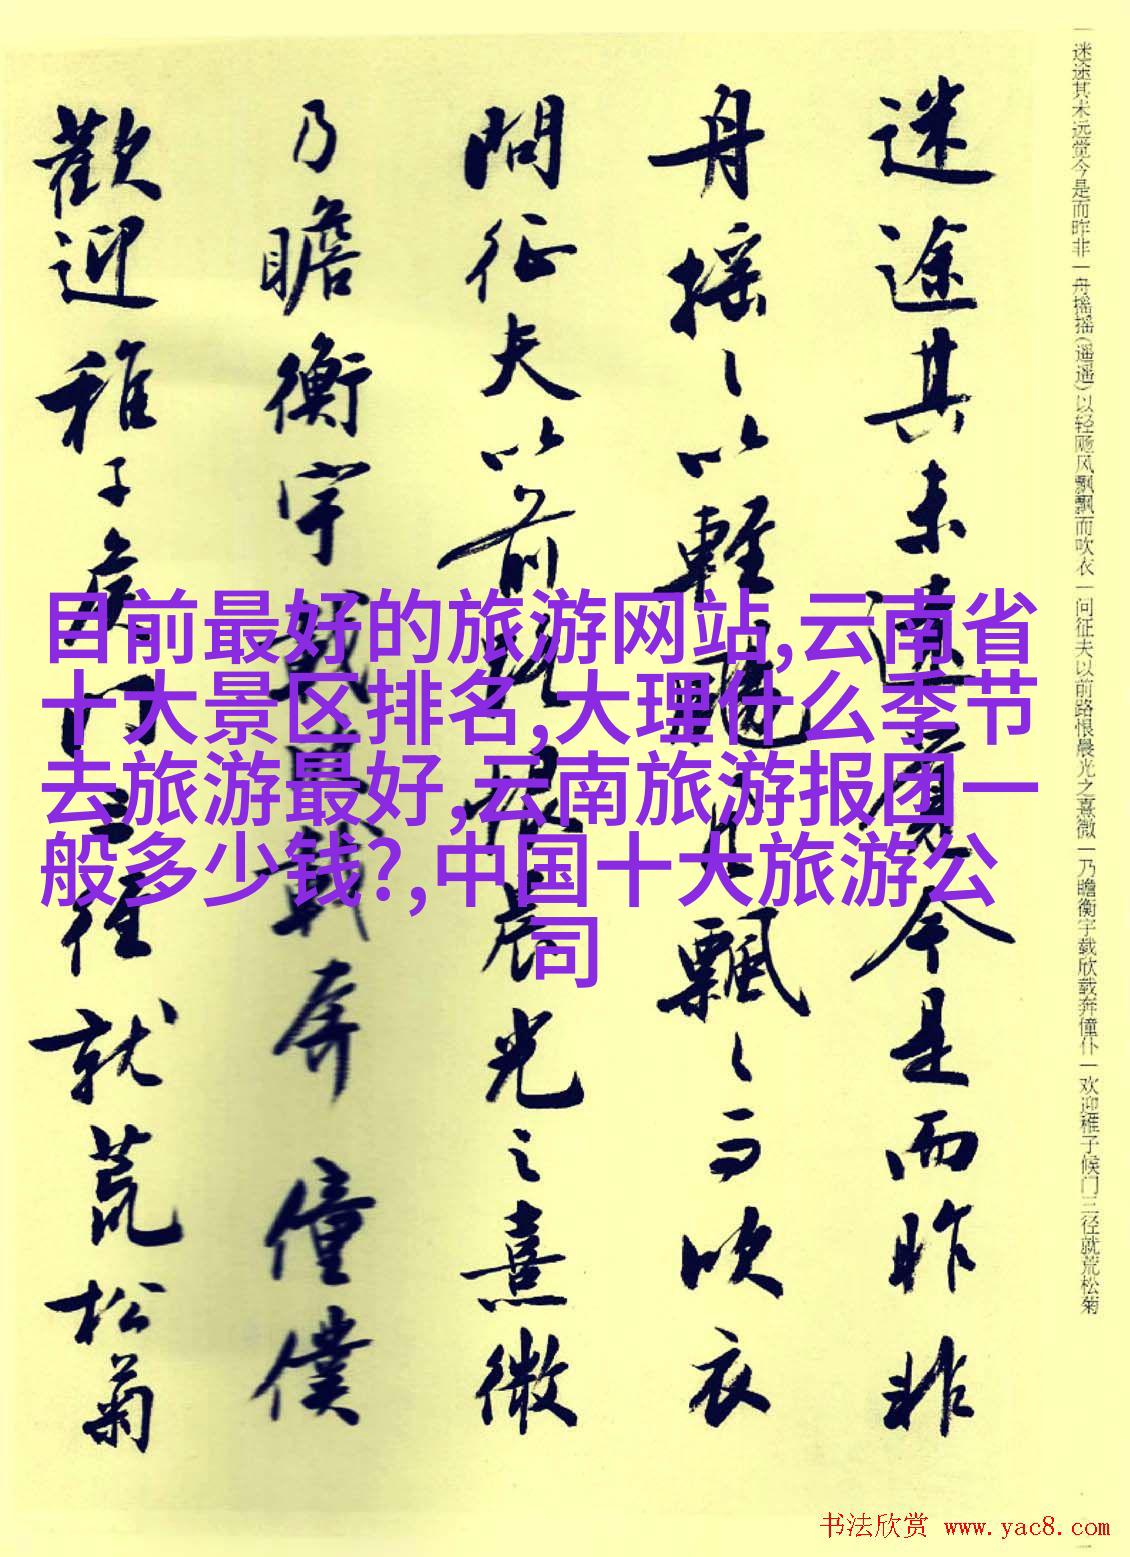 迷途其未远觉今是而昨非一舟摇摇(遥遥)以轻飏风飘飘而吹衣一问征夫以前路恨晨光之熹微一乃瞻衡宇载欣载奔僮仆一欢迎稚子候门三径就荒松菊
迷途其未遠覺今是而昨非
舟摇〻以輕颺風飄〻而吹衣
問征夫以前路恨晨光之熹微
乃瞻衡宇載欣載奔僮僕
歡迎稚子候门三径就荒松菊
目前最好的旅游网站,云南省
十大景区排名,大理什么季节
去旅游最好,云南旅游报团一
般多少钱?,中国十大旅游公
司
书法欣赏 www.yac8.com